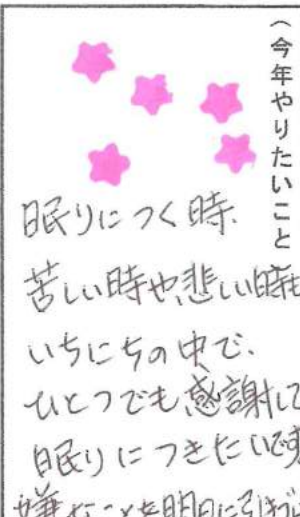 （今年やりたいこと
眠りにつく時、
苦しい時や悲しい時も
いちにちの中で、
ひとつでも感謝して
眠りにつきたいです
嫌なことを明日に引きずら